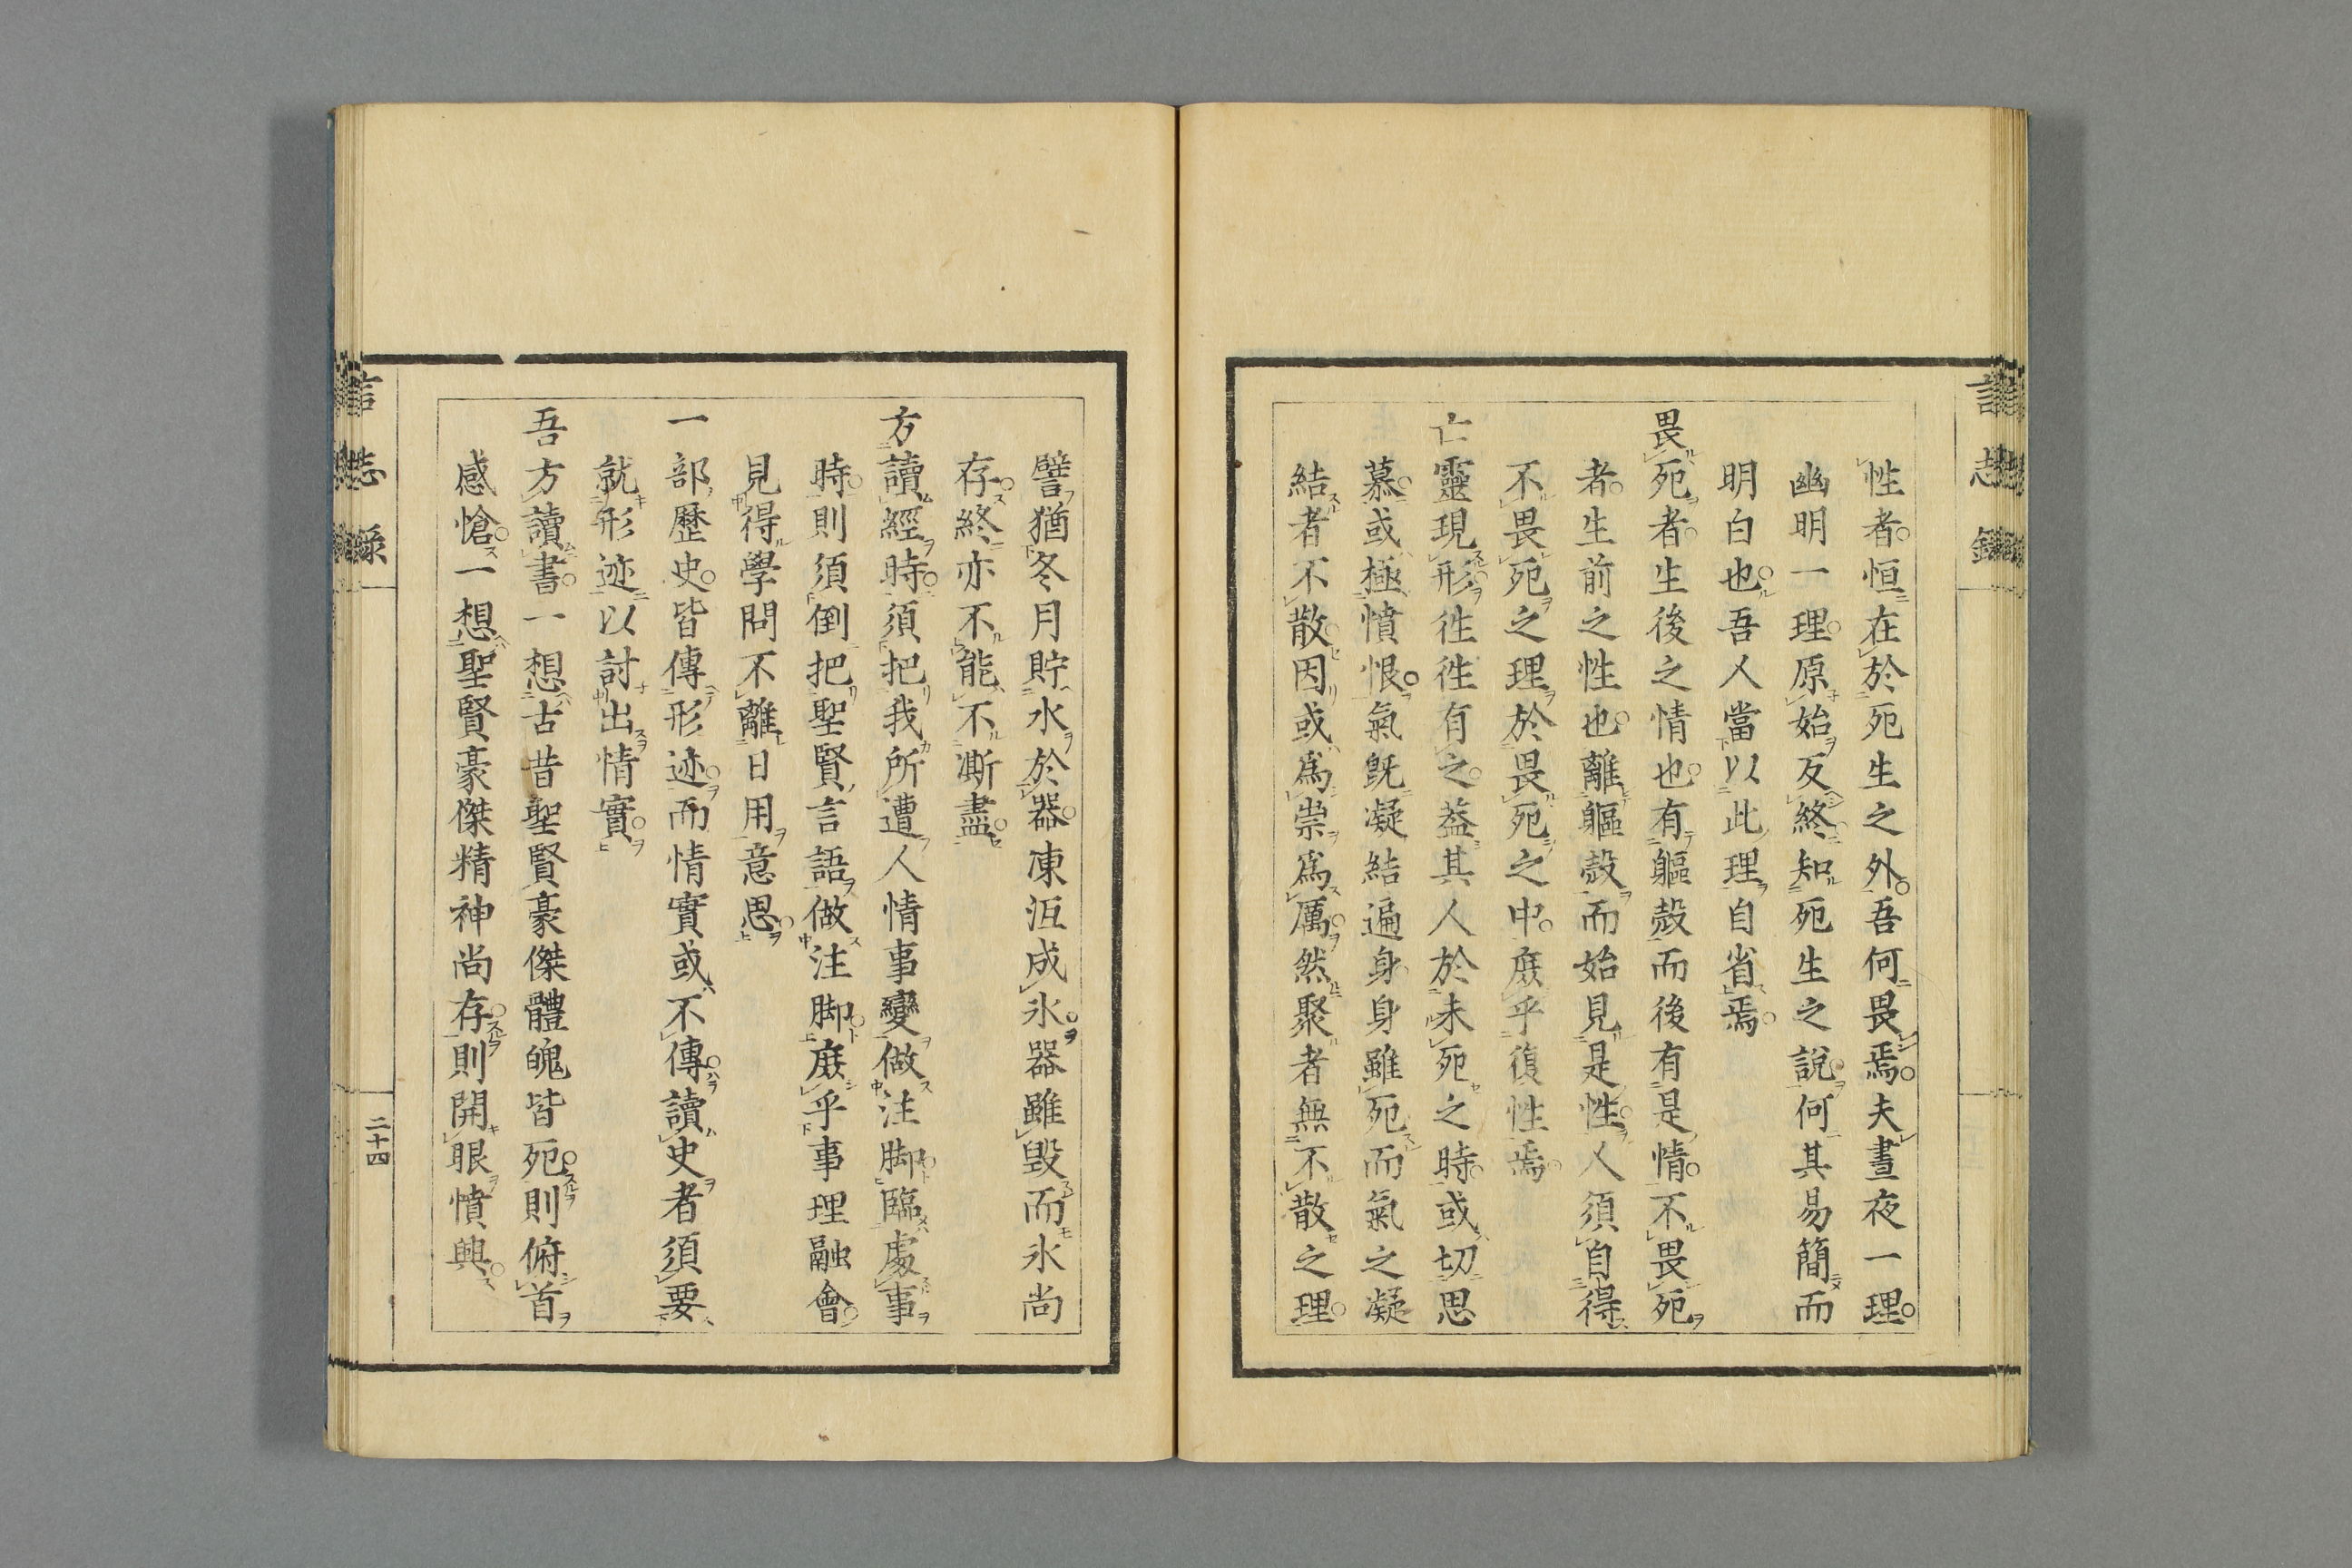 言志録
性者恒在於死生之外吾何畏焉夫晝夜一理
幽明一理原始反終知死生之說何其易簡而
明白也吾人當以此理自省焉
畏死者生後之情也有軀殼而後有是情不畏死
者生前之性也離軀殼而始見是性人須自得
不畏死之理於畏死之中庶乎復性焉
亡靈現形徃徃有之葢其人於未死之時或切思
慕或極憤恨氣既凝結遍身身雖死而氣之凝
結者不散因或爲崇爲厲然聚者無不散之理
譬猶冬月貯水於器凍沍成氷器雖毀而氷尚
存終亦不能不澌盡
方讀經時須把我所遭人情事變做注脚臨處事
時則須倒把聖賢言語做注脚庶乎事理融會
見得學問不離日用意思
一部歷史皆傳形迹而情實或不傳讀史者須要
就形迹以討出情實
吾方讀書一想古昔聖賢豪傑體魄皆死則俯首
感愴一想聖賢豪傑精神尚存則開眼憤興
言志録
二十四